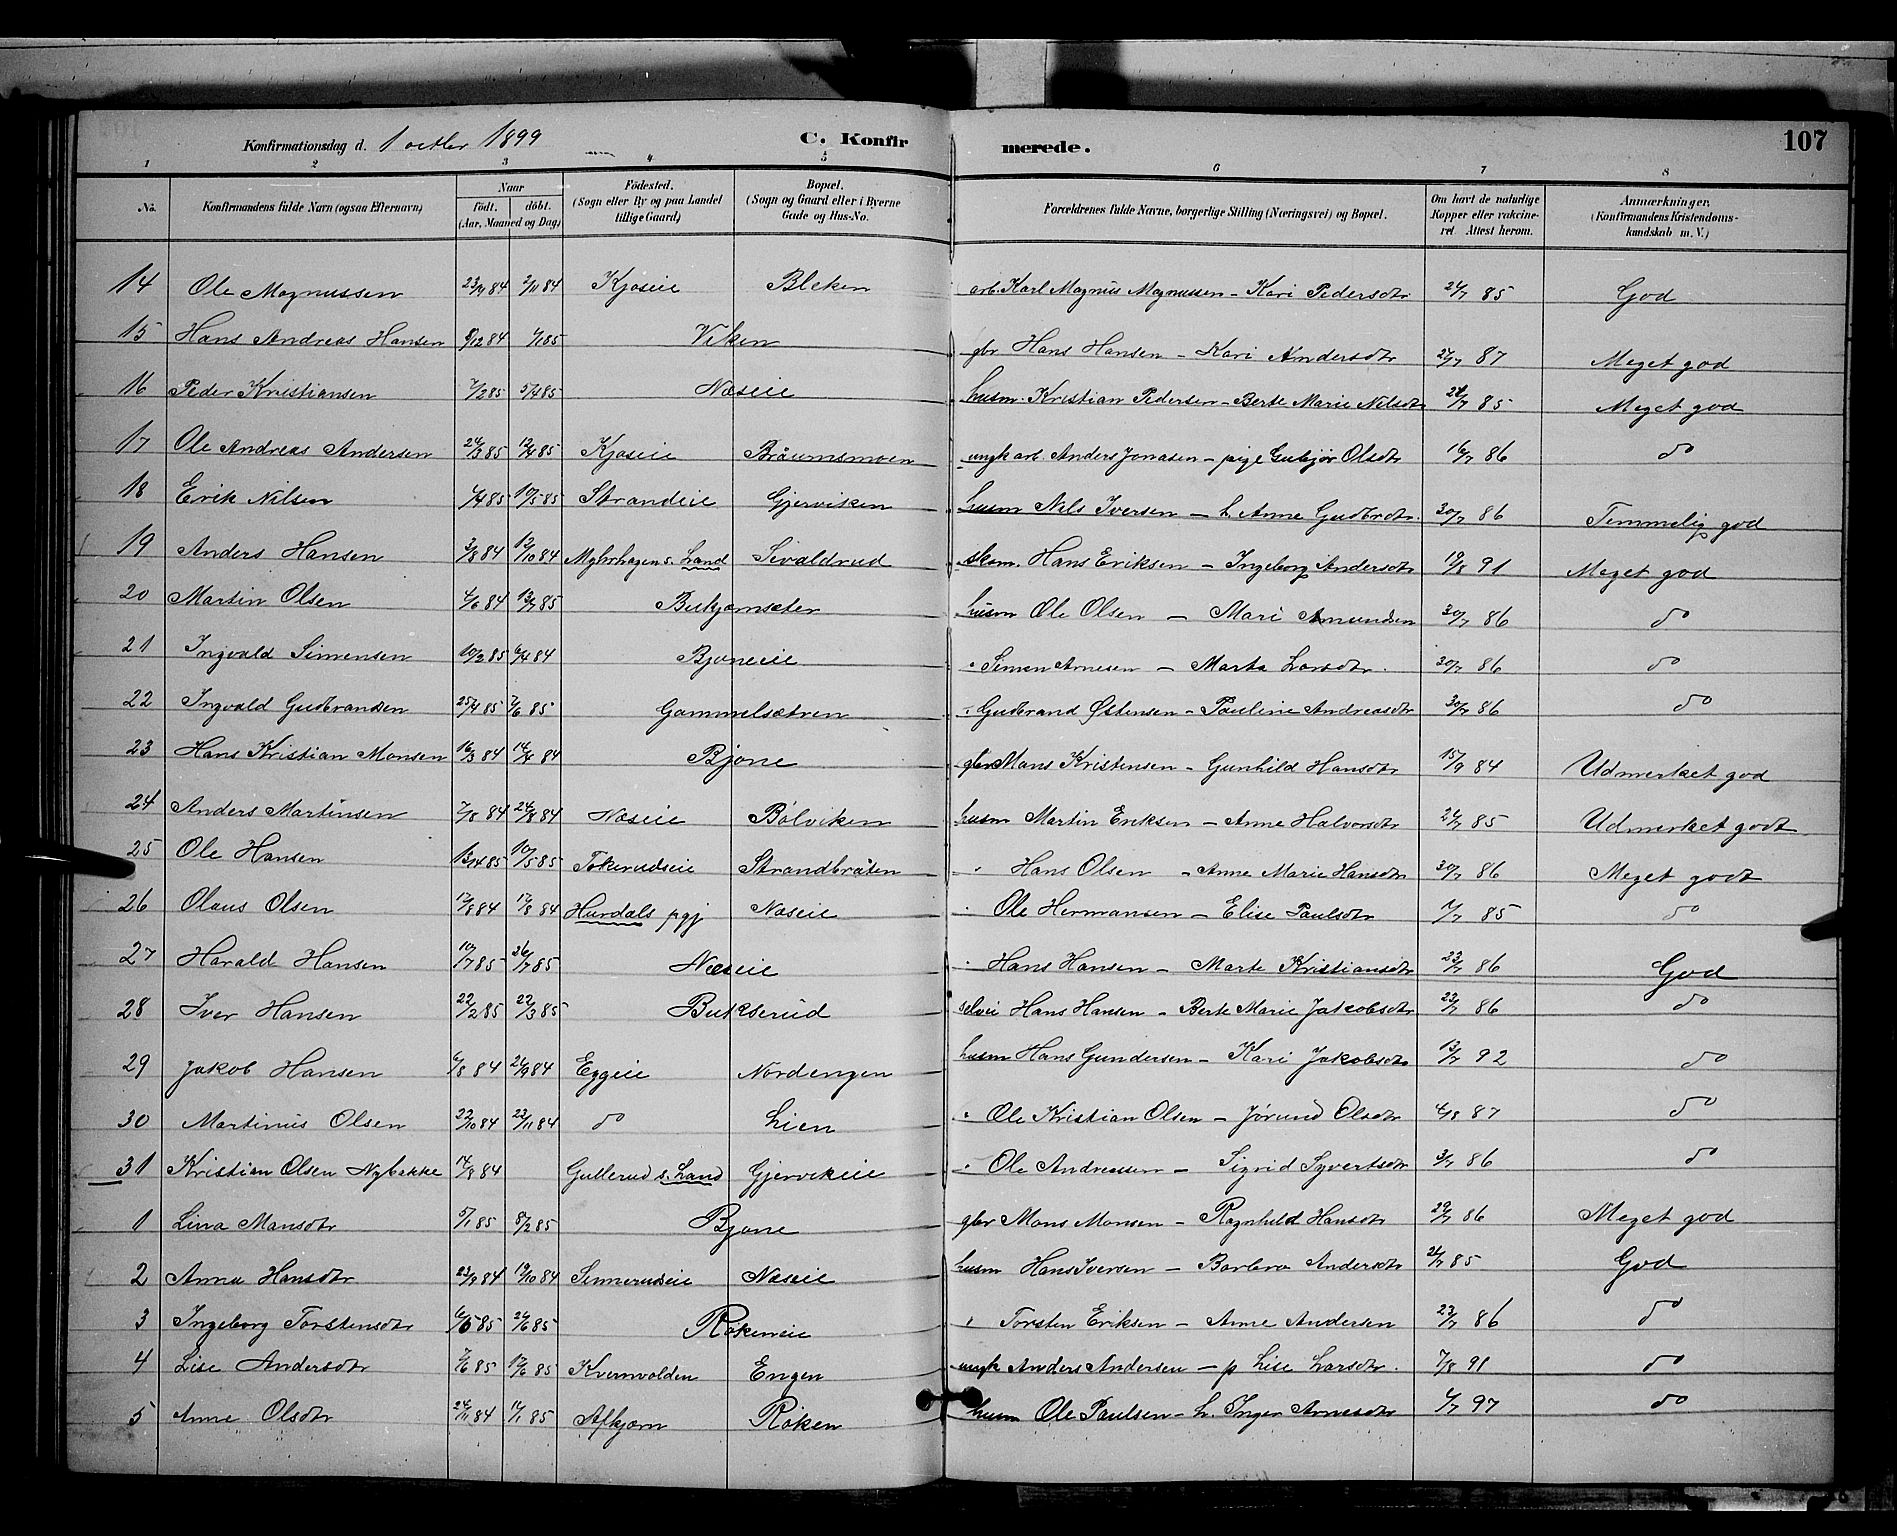 Konfirmationsdag d. 1 octbr 1899 C. Konfirmerede. 107
1 2 3 4 5 6 7 8
No. Konfirmandens fulde Navn (ogsaa Efternavn) Naar født. døbt. (Aar, Maaned og Dag) Fødested. (Sogn eller By og paa Landet tillige Gaard) Bopæl. (Sogn og Gaard eller i Byerne Gade og Hus-No. Forældrenes fulde Navne, borgerlige Stilling (Næringsvei) og Bopæl. Om havt de naturlige Kopper eller vakcineret Attest herom. Anmærkninger. (Konfirmandens Kristendomskundskab m. V.)
14 Ole Magnussen 23/9 84 2/11 84 Kjoseie Bleken arb. Karl Magnus Magnussen - Kari Pedersdtr 24/7 85 God
15 Hans Andreas Hansen 8/12 84 4/1 85 Viken gbr Hans Hansen - Kari Andersdtr 27/7 87 Meget god
16 Peder Kristiansen 7/2 85 5/4 85 Næseie husm. Kristian Pedersen - Berte Marie Nilsdtr 24/7 85 Meget god
17 Ole Andreas Andersen 24/3 85 12/4 85 Kjoseie Bråumsmoen ungk arb Anders Jonasen - pige Gubjør Olsdtr 16/7 86 do
18 Erik Nilsen 4/4 85 17/5 85 Strandeie Gjerviken husm Nils Iversen - h. Anne Gudbrdtr. 30/7 86 Temmelig god
19 Anders Hansen 3/8 84 12/10 84 Myhrhagen s. Land Sivaldrud skom. Hans Eriksen - Ingeborg Andersdtr 19/8 91 Meget god
20 Martin Olsen 4/6 84 13/7 85 Bukjernsæter husm Ole Olsen - Mari Amundsen 30/7 86 do
21 Ingvald Simensen 10/2 85 6/4 84 Bjoneeie " Simen Arnesen - Marta Larsdtr. 30/7 86 do
22 Ingvald Gudbrandsen 25/4 85 7/6 85 Gammelsætren " Gudbrand Østensen - Pauline Andreasdtr 30/7 86 do
23 Hans Kristian Monsen 16/3 84 14/4 84 Bjone gbr Mons Kristensen - Gunhild Hansdtr 15/9 84 Udmerket god
24 Anders Martinsen 7/8 84 24/8 84 Næseie Bølviken husm Martin Eriksen - Anne Halvorsdtr 24/7 85 Udmerket godt
25 Ole Hansen 15/4 85 10/5 85 Tokerudseie Strandbråten " Hans Olsen - Anne Marie Hansdtr 30/7 86 Meget godt
26 Olaus Olsen 17/8 84 17/8 84 Hurdals pgj Næseie " Ole Hermansen - Elise Paulsdtr 7/7 85 do
27 Harald Hansen 10/7 85 26/7 85 Næseie " Hans Hansen - Marte Kristiansdtr 23/7 86 God
28 Iver Hansen 22/2 85 22/3 85 Bukserud selvei Hans Hansen - Berte Marie Jakobsdtr 23/7 86 do
29 Jakob Hansen 6/8 84 21/9 84 Eggeie Nordengen husm Hans Gundersen - Kari Jakobsdtr 13/7 92 do
30 Martinus Olsen 22/10 84 23/11 84 do Lien " Ole Kristian Olsen - Jørund Olsdtr 4/8 87 do
31 Kristian Olsen Nybakke 14/8 84 Gullerud s. Land Gjervikeie " Ole Andreassen - Sigrid Syvertsdtr 3/7 86 do
1 Lina Monsdtr 5/1 85 8/2 85 Bjone gbr Mons Monsen - Ragnhild Hansdtr 29/7 86 Meget god
2 Anna Hansdtr 23/9 84 19/10 84 Sinnerudseie Næseie husm Hans Iversen - Barbra Andersdtr 24/7 85 God
3 Ingeborg Torstensdtr 6/5 85 21/6 85 Røkeneie " Torsten Eriksen - Anne Andersen 23/7 86 do
4 Lise Andersdtr 7/6 85 17/6 85 Kvernvolden Engen ungk Anders Andersen - p Lise Larsdtr. 7/8 91 do
5 Anne Olsdtr 24/11 84 17/1 85 Afkjærn Røken husm Ole Paulsen - h. Inger Arnesdtr 4/7 97 do